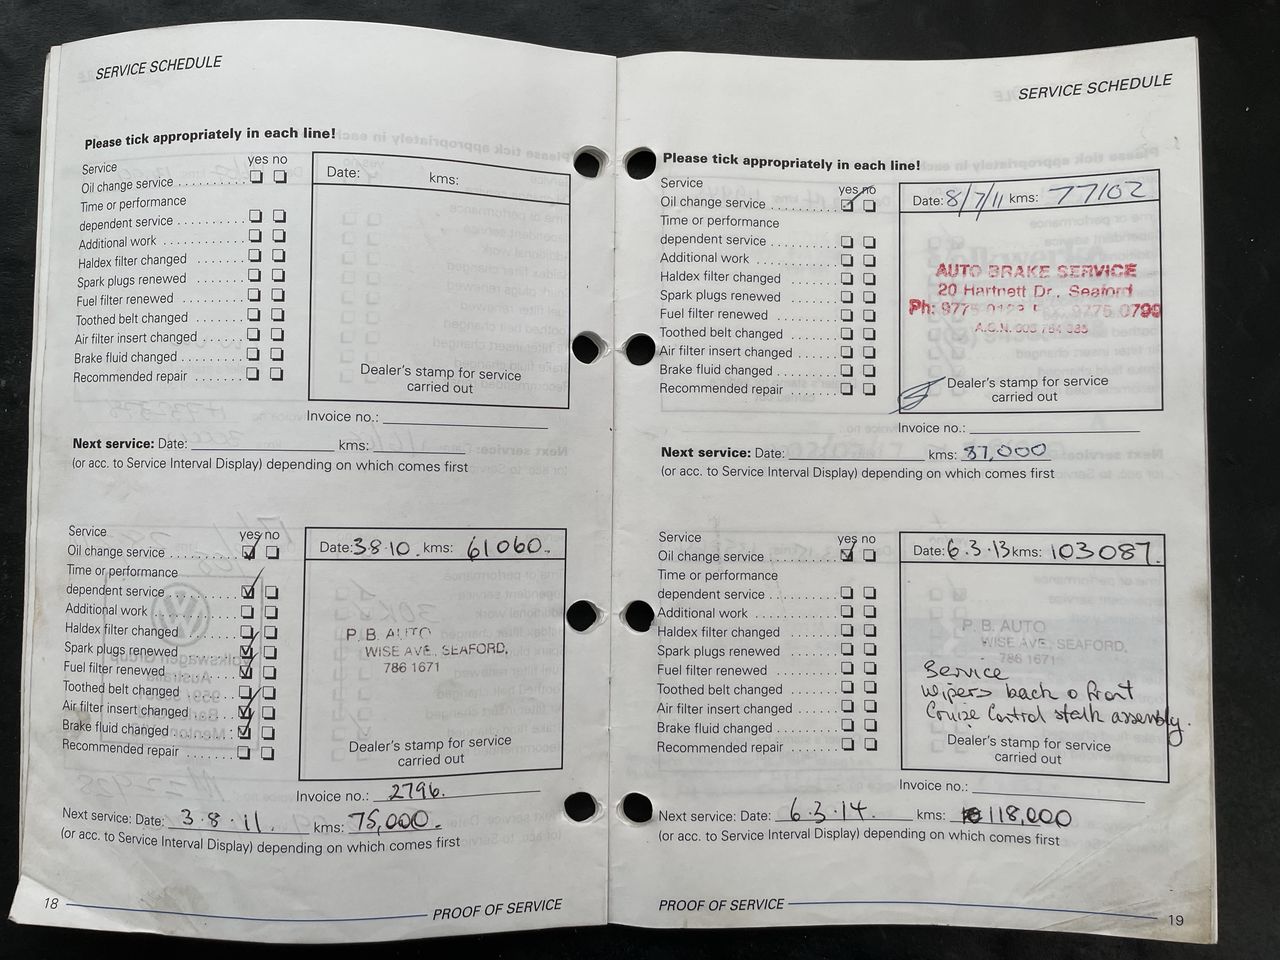 SERVICE SCHEDULE
Please tick appropriately in each line!
Service yes no
Oil change service
Time or performance
dependent service
Additional work
Haldex filter changed
Spark plugs renewed
Fuel filter renewed
Toothed belt changed
Air filter insert changed
Brake fluid changed
Recommended repair
Date: kms:
Dealer's stamp for service
carried out
Invoice no.:
Next service: Date: kms:
(or acc. to Service Interval Display) depending on which comes first
Service yes no
Oil change service
Time or performance
dependent service
Additional work
Haldex filter changed
Spark plugs renewed
Fuel filter renewed
Toothed belt changed
Air filter insert changed
Brake fluid changed
Recommended repair
Date: 3.8.10. kms: 61060.
P. B. AUTO
WISE AVE, SEAFORD,
786 1671
Dealer's stamp for service
carried out
Invoice no.: 2796.
Next service: Date: 3.8.11. kms: 75,000.
(or acc. to Service Interval Display) depending on which comes first
18 PROOF OF SERVICE
SERVICE SCHEDULE
Please tick appropriately in each line!
Service yes no
Oil change service
Time or performance
dependent service
Additional work
Haldex filter changed
Spark plugs renewed
Fuel filter renewed
Toothed belt changed
Air filter insert changed
Brake fluid changed
Recommended repair
Date: 8/7/11 kms: 77102
AUTO BRAKE SERVICE
20 Hartnett Dr., Seaford
Ph: 9775 0799
A.C.N.
Dealer's stamp for service
carried out
Invoice no.:
Next service: Date: kms: 87,000
(or acc. to Service Interval Display) depending on which comes first
Service yes no
Oil change service
Time or performance
dependent service
Additional work
Haldex filter changed
Spark plugs renewed
Fuel filter renewed
Toothed belt changed
Air filter insert changed
Brake fluid changed
Recommended repair
Date: 6.3.13 kms: 103087.
P. B. AUTO
WISE AVE, SEAFORD,
786 1671
Service
Wipers back o front
Cruise Control stalk assembly.
Dealer's stamp for service
carried out
Invoice no.:
Next service: Date: 6.3.14. kms: 118,000
(or acc. to Service Interval Display) depending on which comes first
PROOF OF SERVICE 19